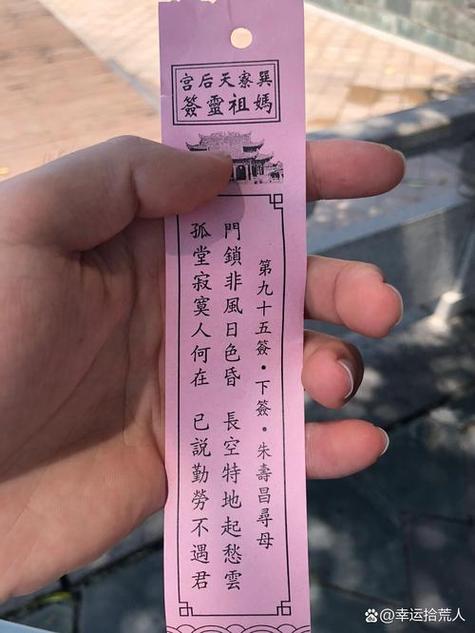 巽寮天后宮
媽祖靈簽
第九十五簽·下簽·朱壽昌尋母
門鎖非風日色昏 長空特地起愁雲
孤堂寂寞人何在 已説勤勞不遇君
@幸运拾荒人